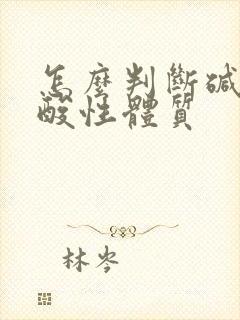 怎麼判斷碱
酸性體質
林岑